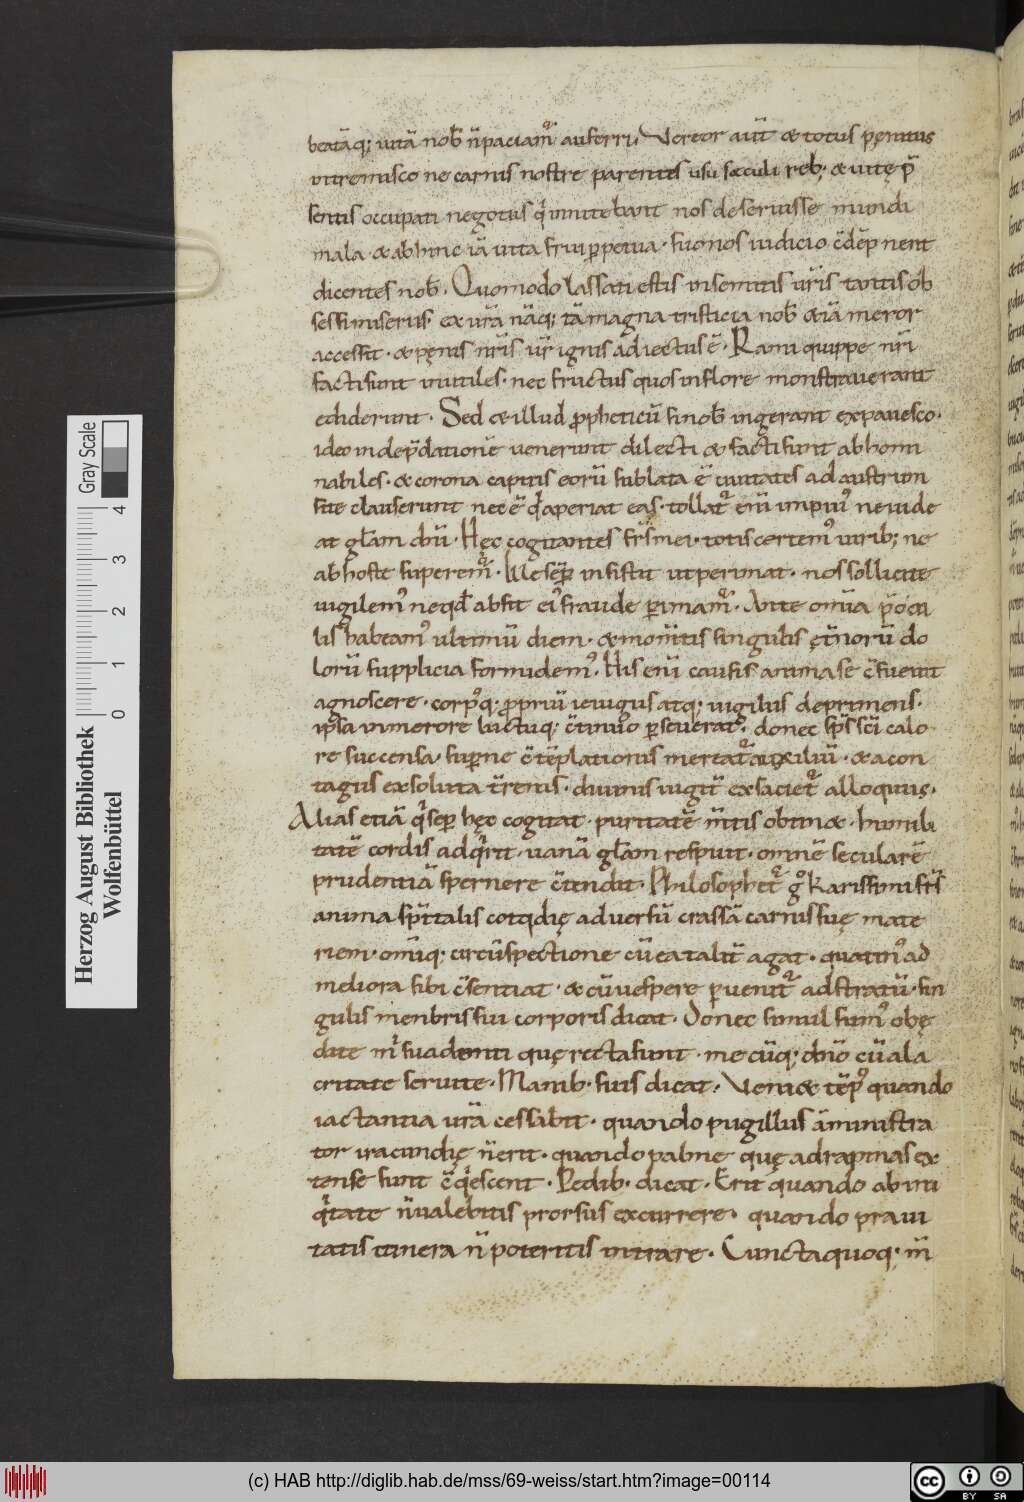 beatāq; uitā nob̄ n̄ paciamꝰ auferri. Vereor aut̄ & totus pęnitus
intremisco ne carnis nostre parentes usu sęculi reb; & uitę p̄
sentis occupati negotiis q̇ innitebant nos deseruisse mundi
mala & ab hinc iā uita frui ꝑpetua. suo nos iudicio c̄dēpnent
dicentes nob̄. Quomodo lassati estis in semitis ur̄is tantis ob
sessi miseriis. ex ur̄a nāq; tā magna tristicia nob̄ & iā meror
accessit. & pęnis nr̄is ur̄ ignis adiectus ē. Rami quippe nr̄i
facti sunt inutiles. nec fructus quos in flore monstrauerant
ediderunt. Sed & illud ꝓpheticū si nob̄ ingerant expauesco.
ideo in dep̄datione uenerunt dilecti & facti sunt abhomi
nabiles. & corona capitis eorū sublata ē ciuitates ad austrum
site clauserunt nec ē q̄ aperiat eas. tollat̄ eni impiuꝰ ne uide
at gl̄am dn̄i. Hęc cogitantes fr̄s mei. totis certemꝰ uirib; ne
ab hoste superemꝰ. Ille sēꝑ insistit ut perimat. nos sollicite
uigilemꝰ neqd̄ absit eiꝰ fraude ꝑimamꝰ. Ante om̄ia p̄ ocu
lis habeamꝰ ultimū diem. & mom̄tis singulis ęt̄norū do
lorū supplicia formidemꝰ. His eni causis anima se c̄sueuit
agnoscere. corpꝰq; ꝓpriū ieiuniis atq; uigiliis deprimens.
ipsa in merore luctuq; c̄tinuo ꝑseuerat. donec sp̄s sc̄i calo
re succensa. suꝑne c̄tēplationis mereat̄ auxiliū. & a con
tagiis exsoluta t̄renis. diuinis iugit̄ exsaciet̄ alloquiis.
Alias etiā q̇ sēꝑ hęc cogitat. puritatē m̄tis obtin&. humili
tatē cordis adq̇rit. uanā gl̄am respuit. omnē secularē
prudentiā spernere c̄tendit. Philosophet̄ gͦ karissimi fr̄s
anima sp̄italis cotidię aduersū crassā carnis suę mate
riem. om̄iq; circūspectione cū ea talit̄ agat. quatinꝰ ad
meliora sibi c̄sentiat. & cū uespere ꝑuenit̄ ad stratū. sin
gulis menbris sui corporis dicat. Donec simul sumꝰ obę
dite m̄ suadenti quę recta sunt. mecūq; dn̄o cū ala
critate seruite. Manib. suis dicat. Veni& tēpꝰ quando
iactantia ur̄a cessabit. quando pugillus āministra
tor iracundię n̄ erit. quando palme quę ad rapinas ex
tense sunt c̄q̇escent. Pedib. dicat. Erit quando ab ini
q̇tate n̄ ualebitis prorsus excurrere. quando praui
tatis itinera n̄ poteritis intrare. Cuncta quoq; m̄
Gray Scale
4
3
2
1
0
Herzog August Bibliothek
Wolfenbüttel
(c) HAB http://diglib.hab.de/mss/69-weiss/start.htm?image=00114
cc BY SA